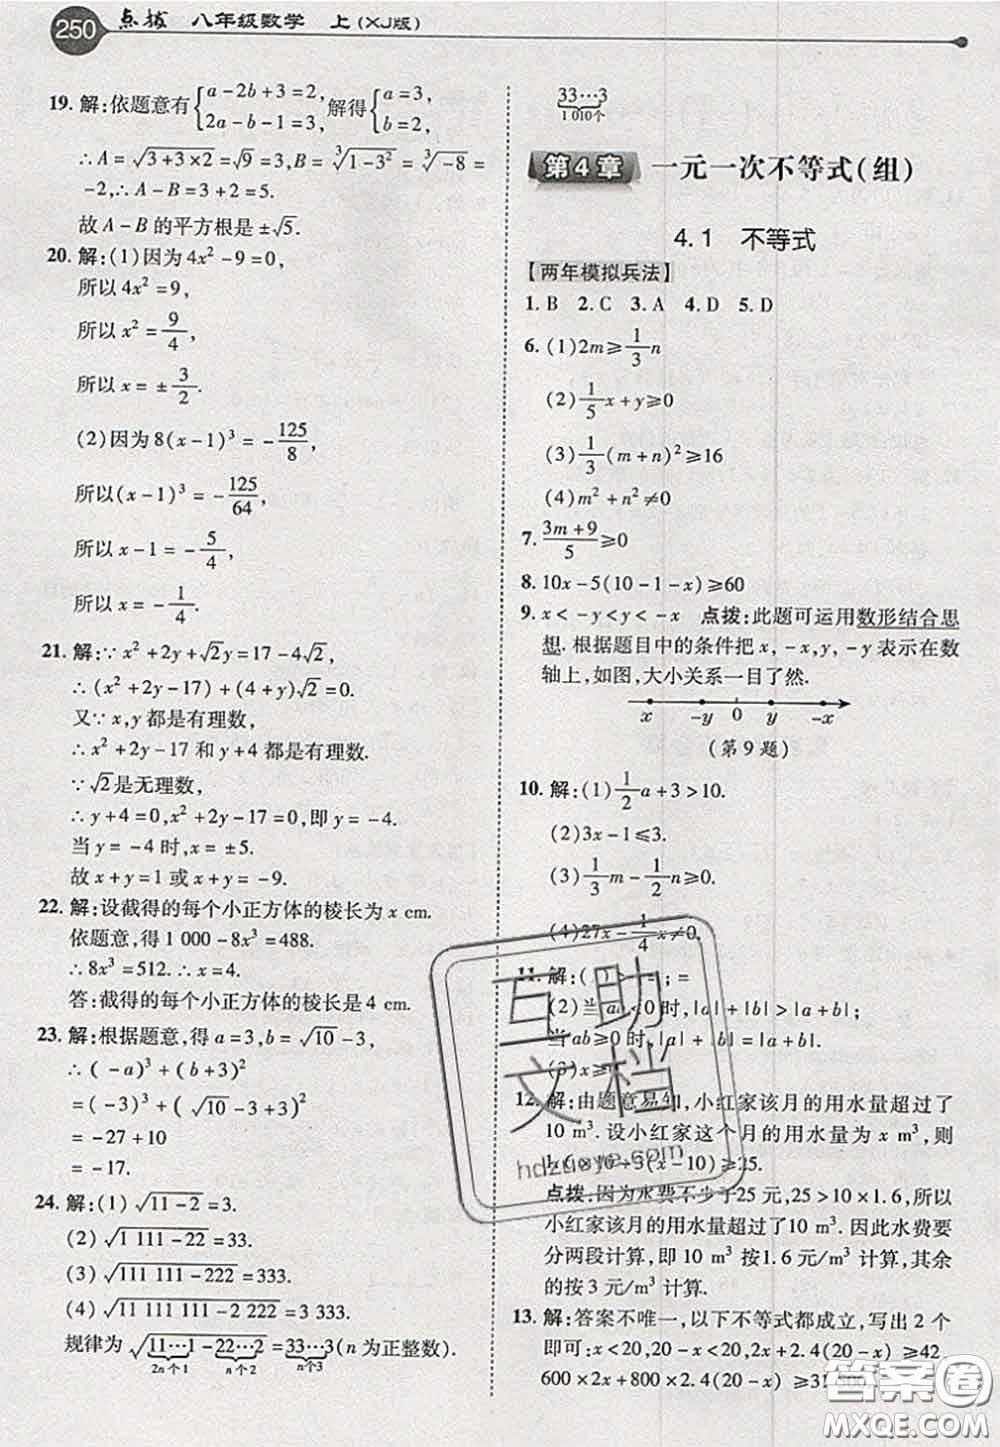 250 点拨 八年级数学 上(XJ版)
19. 解:依题意有{a-2b+3=2, 2a-b-1=3, 解得{a=3, b=2,
∴A=√(3+3×2)=√9=3,B=∛(1-3²)=∛(-8)=
-2,∴A-B=3+2=5.
故A-B的平方根是±√5.
20. 解:(1)因为4x²-9=0,
所以4x²=9,
所以x²=9/4,
所以x=±3/2.
(2)因为8(x-1)³=-125/8,
所以(x-1)³=-125/64,
所以x-1=-5/4,
所以x=-1/4.
21. 解:∵x²+2y+√2y=17-4√2,
∴(x²+2y-17)+(4+y)√2=0.
又∵x,y都是有理数,
∴x²+2y-17和y+4都是有理数.
∵√2是无理数,
∴y+4=0,x²+2y-17=0,即y=-4.
当y=-4时,x=±5.
故x+y=1或x+y=-9.
22. 解:设截得的每个小正方体的棱长为x cm.
依题意,得1 000-8x³=488.
∴8x³=512.∴x=4.
答:截得的每个小正方体的棱长是4 cm.
23. 解:根据题意,得a=3,b=√10-3,
∴(-a)³+(b+3)²
=(-3)³+(√10-3+3)²
=-27+10
=-17.
24. 解:(1)√(11-2)=3.
(2)√(1 111-22)=33.
(3)√(111 111-222)=333.
(4)√(11 111 111-2 222)=3 333.
规律为√(11…1-22…2)=33…3(n为正整数).
2n个1 n个2 n个3
33…3
1 010个
第4章 一元一次不等式(组)
4.1 不等式
【两年模拟兵法】
1. B 2. C 3. A 4. D 5. D
6. (1)2m≥1/3n
(2)1/5x+y≥0
(3)1/3(m+n)²≥16
(4)m²+n²≠0
7. (3m+9)/5≥0
8. 10x-5(10-1-x)≥60
9. x<-y<y<-x 点拨:此题可运用数形结合思
想.根据题目中的条件把x,-x,y,-y表示在数
轴上,如图,大小关系一目了然.
x -y 0 y -x
(第9题)
10. 解:(1)1/2a+3>10.
(2)3x-1≤3.
(3)1/3m-1/2n≥0.
(4)27x-1/4x≠0.
11. 解:(1)>;=;=
(2)当ab<0时,|a|+|b|>|a+b|;
当ab≥0时,|a|+|b|=|a+b|.
(3)x≥
12. 解:由题意易知,小红家该月的用水量超过了
10 m³.设小红家这个月的用水量为x m³,则
1.6×10+3(x-10)≥25.
点拨:因为水费不少于25元,25>10×1.6,所以
小红家该月的用水量超过了10 m³.因此水费要
分两段计算,即10 m³按1.6元/m³计算,其余
的按3元/m³计算.
13. 解:答案不唯一,以下不等式都成立,写出2个
即可:x<20,20-x<20,2x+2.4(20-x)≥42,
600×2x+800×2.4(20-x)≥31 500
互助
文档
hdzuoye.com
答案圈
MXQE.COM